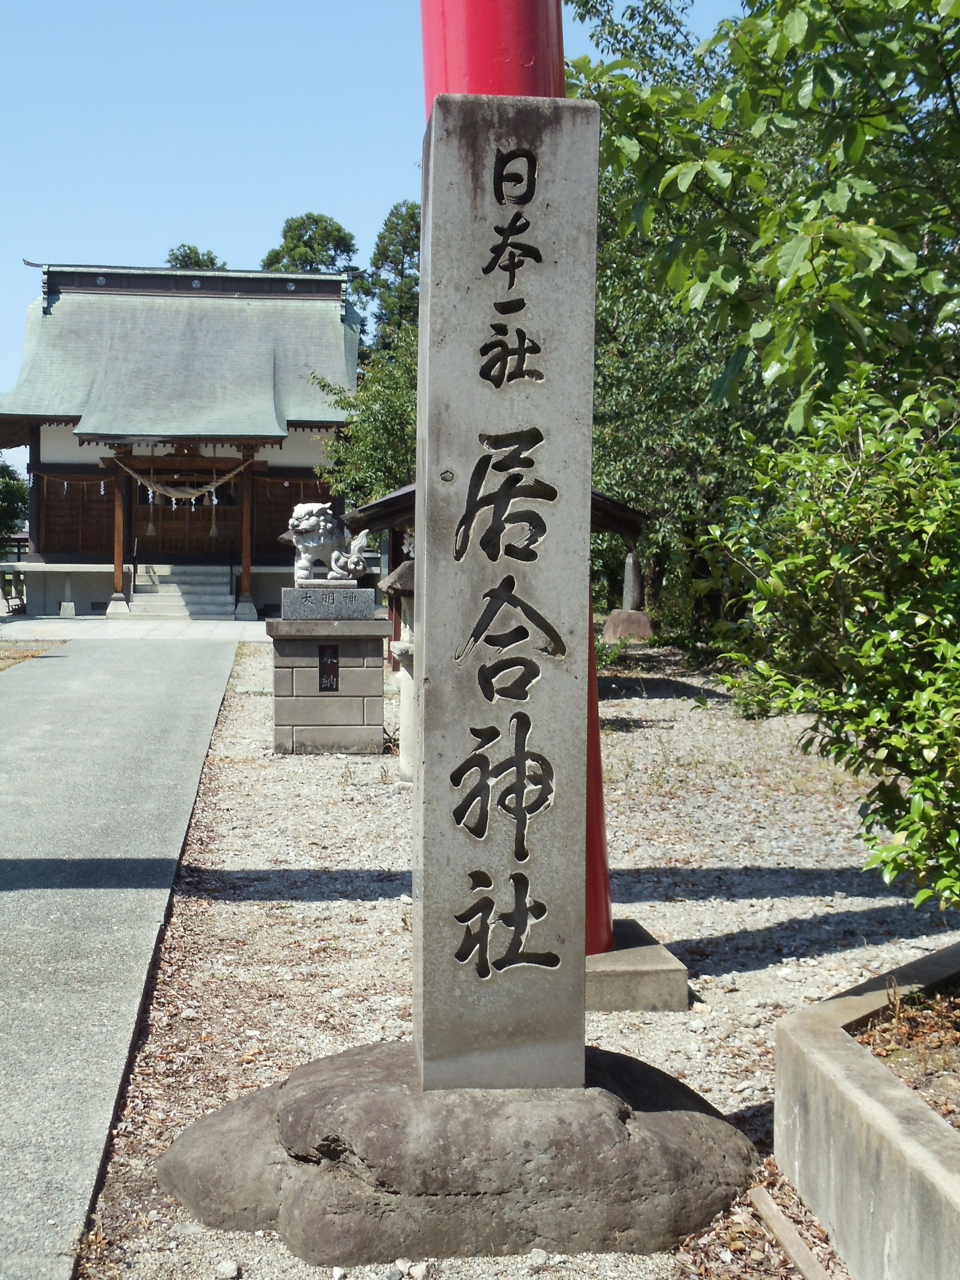 日本一社居合神社
大明神
納